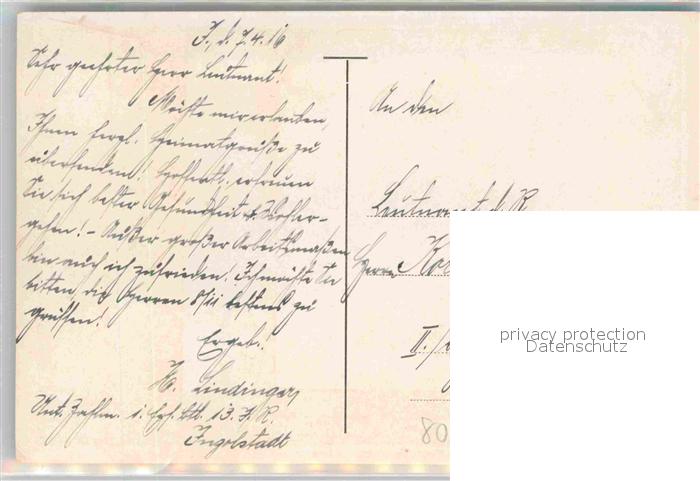 I., d. 7.4.16
Sehr geehrter Herr Leutnant!
Möchte mir erlauben,
Ihnen herzl. Heimatgrüße zu
übersenden! Hoffentl. erfreuen
Sie sich bester Gesundheit & Wohler-
gehen! - Außer großer Arbeitsmassen
bin auch ich zufrieden! Ich möchte Sie
bitten, die Herren 8/II bestens zu
grüssen!
Ergeb.!
H. Lindinger
Unt. Zahlm. i. Ers. Btl. 13. I.R.
Ingolstadt
An den
Leutnant d. R.
Herrn
II./
80
privacy protection
Datenschutz